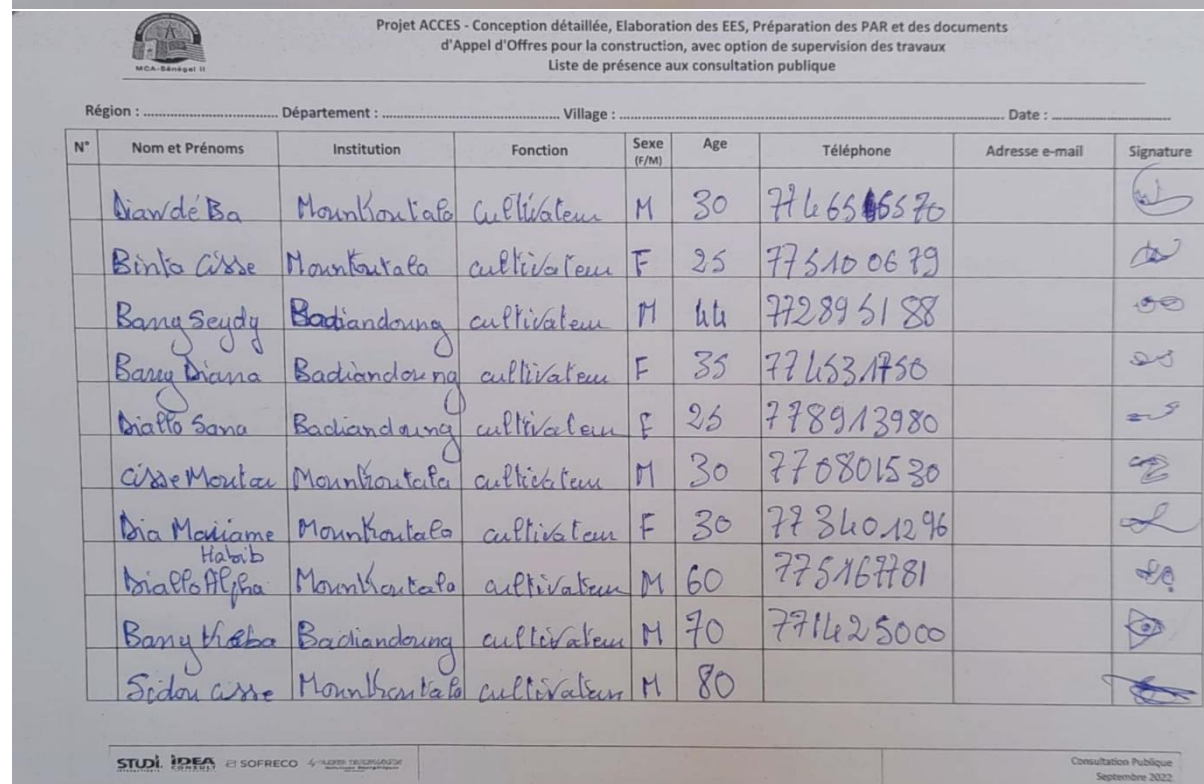 MCA-Sénégal II
Projet ACCES - Conception détaillée, Elaboration des EES, Préparation des PAR et des documents
d'Appel d'Offres pour la construction, avec option de supervision des travaux
Liste de présence aux consultation publique
Région : ................................. Département : ................................. Village : ................................. Date : .................................
N° Nom et Prénoms Institution Fonction Sexe (F/M) Age Téléphone Adresse e-mail Signature
Diawdé Ba Mounkoutala cultivateur M 30
Binta Cisse Mountoutala cultivateur F 25 775100679
Barry Seydy Badiandoung cultivateur M 44 772895188
Barry Diana Badiandoung cultivateur F 35 774531750
Diallo Sana Badiandoung cultivateur F 25 778913980
Cisse Moutar Mounkoutala cultivateur M 30 770801530
Dia Mariame Mounkoutala cultivateur F 30 773401296
Diallo Alpha Habib Mounkoutala cultivateur M 60 775167781
Barry Kéba Badiandoung cultivateur M 70 771425000
Sidou Cisse Mounkoutala cultivateur M 80
STUDI IDEA CONSULT SOFRECO
Consultation Publique
Septembre 2022